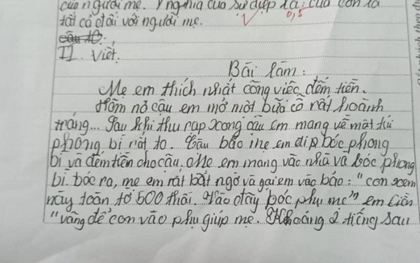 của người mẹ. Ý nghĩa của sự điệp lại của con là
tất cả đối với người mẹ. 0,5
câu 10:
II. Viết.
Bài làm:
Mẹ em thích nhất công việc đếm tiền.
Hôm nọ cậu em mở một bữa cỗ rất hoành
tráng... Sau khi thu rạp xong cậu em mang về một túi
phong bì rất to. Cậu bảo mẹ em đi bóc phong
bì và đếm tiền cho cậu. Mẹ em mang vào nhà và bóc phong
bì. bóc ra, mẹ em rất bất ngờ và gọi em vào bảo: "con xem
này toàn tờ 500 thôi. Vào đây bóc phụ mẹ" em liền
"vâng để con vào phụ giúp mẹ. Khoảng 2 tiếng sau